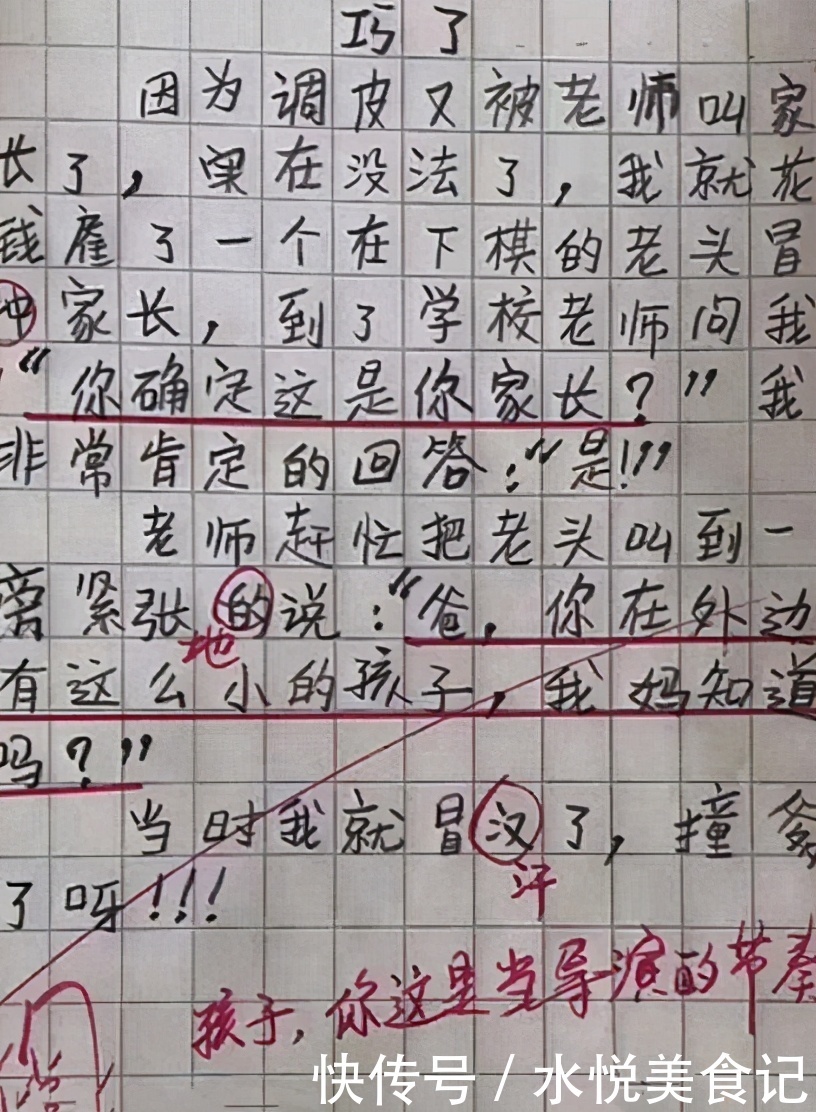 巧了
因为调皮又被老师叫家
长了，实在没法了，我就花
钱雇了一个在下棋的老头冒
冲家长，到了学校老师问我
“你确定这是你家长？”我
非常肯定的回答：“是！”
老师赶忙把老头叫到一
旁紧张的说：“爸，你在外边
地
有这么小的孩子，我妈知道
吗？”
当时我就冒汉了，撞爹
汗
了呀！！！
孩子，你这是当导演的节奏
快传号 / 水悦美食记